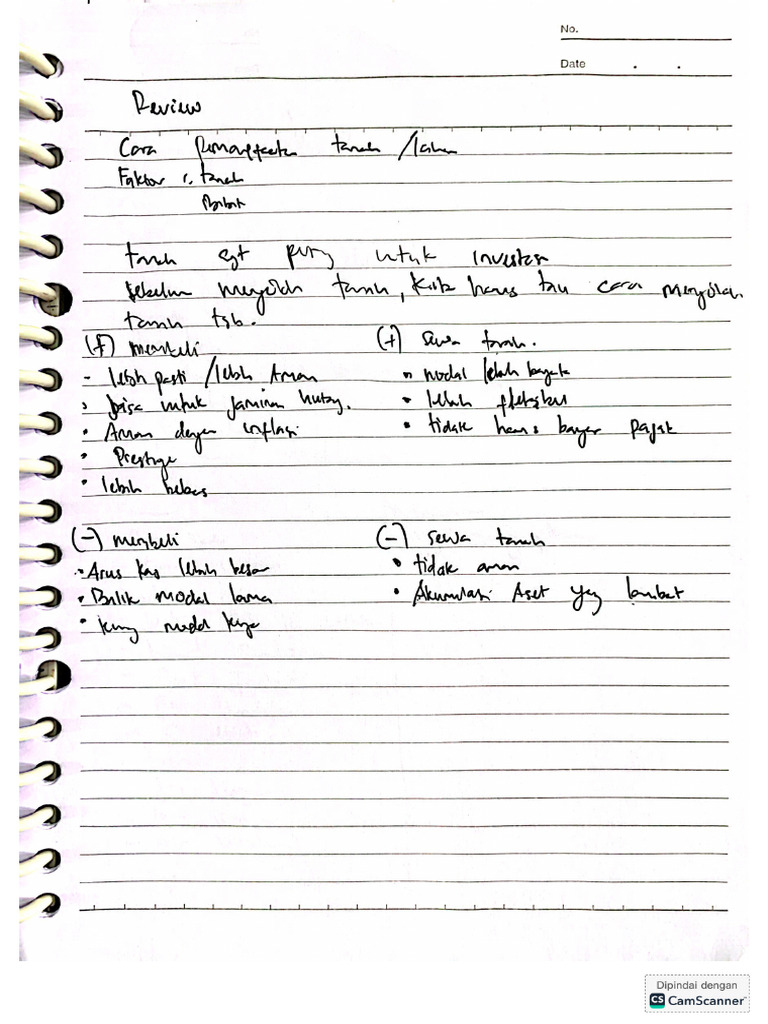 No.
Date . .
Review
Cara Pemanfaatan tanah / lahan
Faktor : tanah
Bibit
tanah sgt untuk investasi
Sebelum mengolah tanah, kita harus tau cara mengolah
tanah tsb.
(+) membeli
- lebih pasti / lebih Aman
• bisa untuk jaminan hutang.
• Aman dengan inflasi
• Prestige
• lebih bebas
(+) Sewa tanah.
• modal lebih
• lebih fleksibel
• tidak harus bayar pajak
(-) membeli
• Arus kas lebih besar
• Balik modal lama
• kurang modal kerja
(-) sewa tanah
• tidak aman
• Akumulasi Aset yang lambat
Dipindai dengan
CS CamScanner